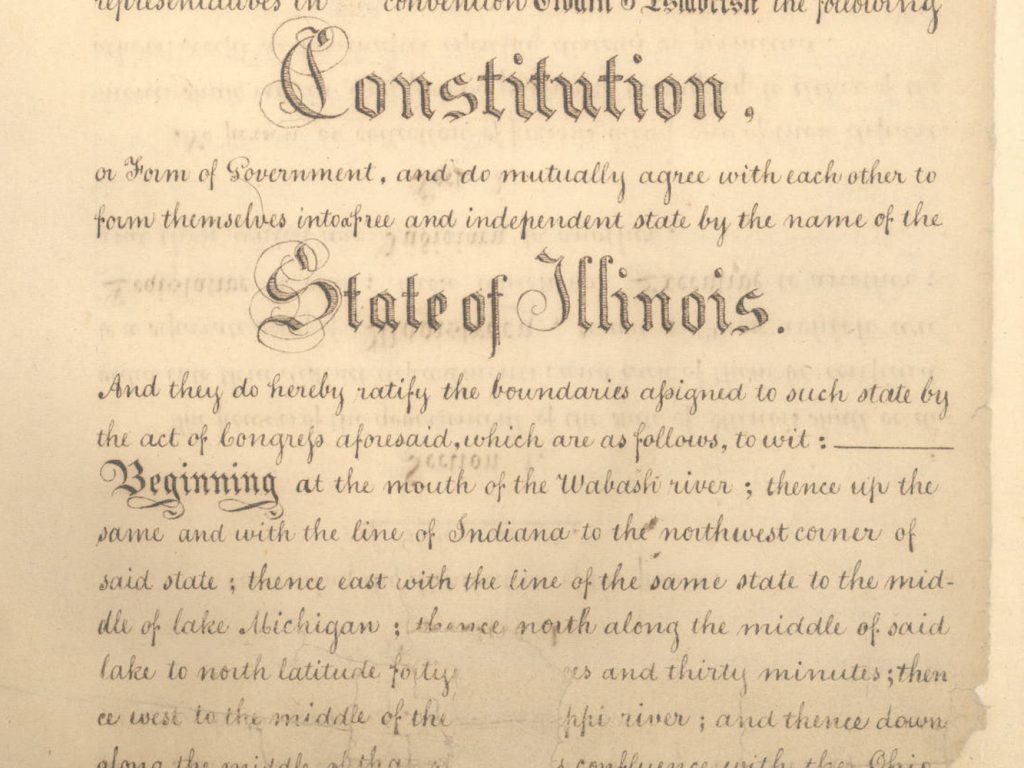 representatives in convention Ordain & Establish the following
Constitution,
or Form of Government, and do mutually agree with each other to
form themselves into a free and independent state by the name of the
State of Illinois.
And they do hereby ratify the boundaries aſsigned to such state by
the act of Congreſs aforesaid, which are as follows, to wit:
Beginning at the mouth of the Wabash river; thence up the
same and with the line of Indiana to the northwest corner of
said state; thence east with the line of the same state to the mid-
dle of lake Michigan; thence north along the middle of said
lake to north latitude forty es and thirty minutes; then
ce west to the middle of the ppi river; and thence down
along the middle of that confluence with the Ohio